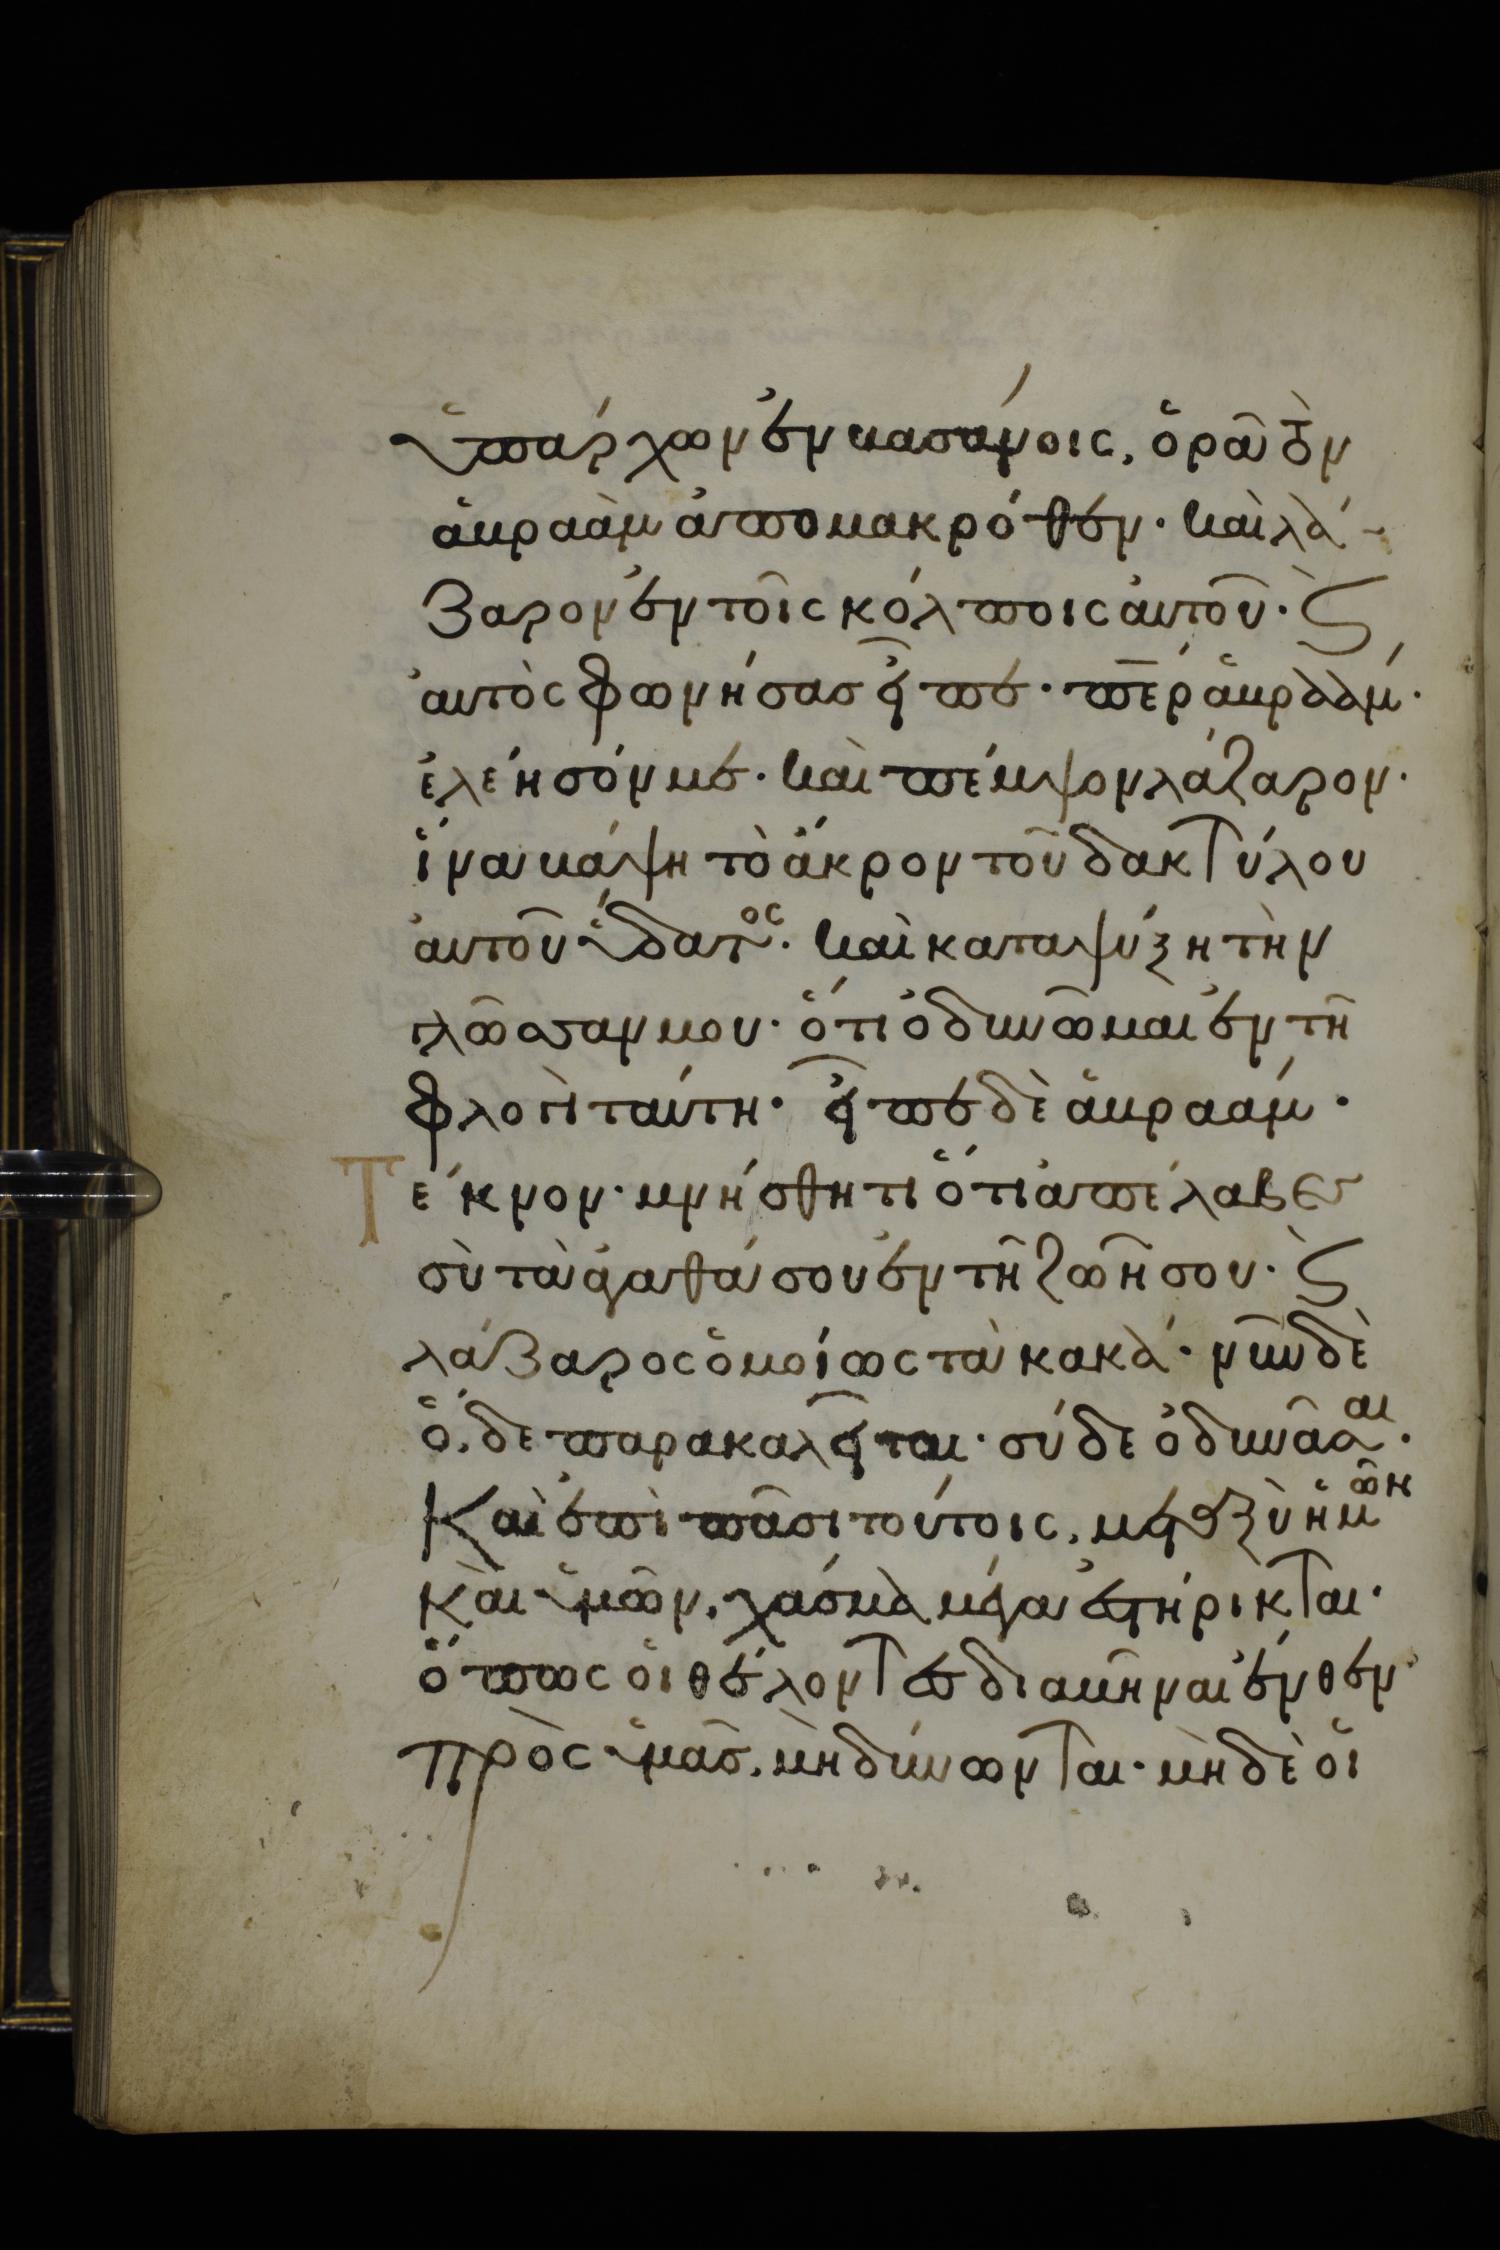 ὑπάρχων ἐν βασάνοις, ὁρᾶ τὸν
ἀβραὰμ ἀπομακρόθεν· καὶ λά-
ζαρον ἐν τοῖς κόλποις αὐτοῦ· ϛ̀
αὐτὸς φωνήσας εἶπε· π̅ε̅ρ ἀβραάμ·
ἐλεησόν με· καὶ πέμψον λάζαρον·
ἵνα βάψη τὸ ἄκρον τοῦ δακτύλου
αὐτοῦ ὕδατος· καὶ καταψύξη τὴν
γλῶσσαν μου· ὅτι ὀδυνῶμαι ἐν τῆ
φλογὶ ταύτη· εἶπε δὲ ἀβραάμ·
Τέκνον· μνήσθητι ὅτι ἀπέλαβες
σὺ τὰ ἀγαθά σου ἐν τῆ ζωῆ σου· ϛ̀
λάζαρος ὁμοίως τὰ κακὰ· νῦν δὲ
ὅδε παρακαλεῖται· σύ δε ὀδυνᾶσαι·
Καὶ ἐπὶ πᾶσι τούτοις, μεταξὺ ἡμῶν
καὶ ὑμῶν, χάσμα μέγα ἐστήρικται·
ὅπως οἱ θέλοντες διαβῆναι ἔνθεν
πρὸς ὑμᾶς, μὴ δύνωνται· μὴ δὲ οἱ